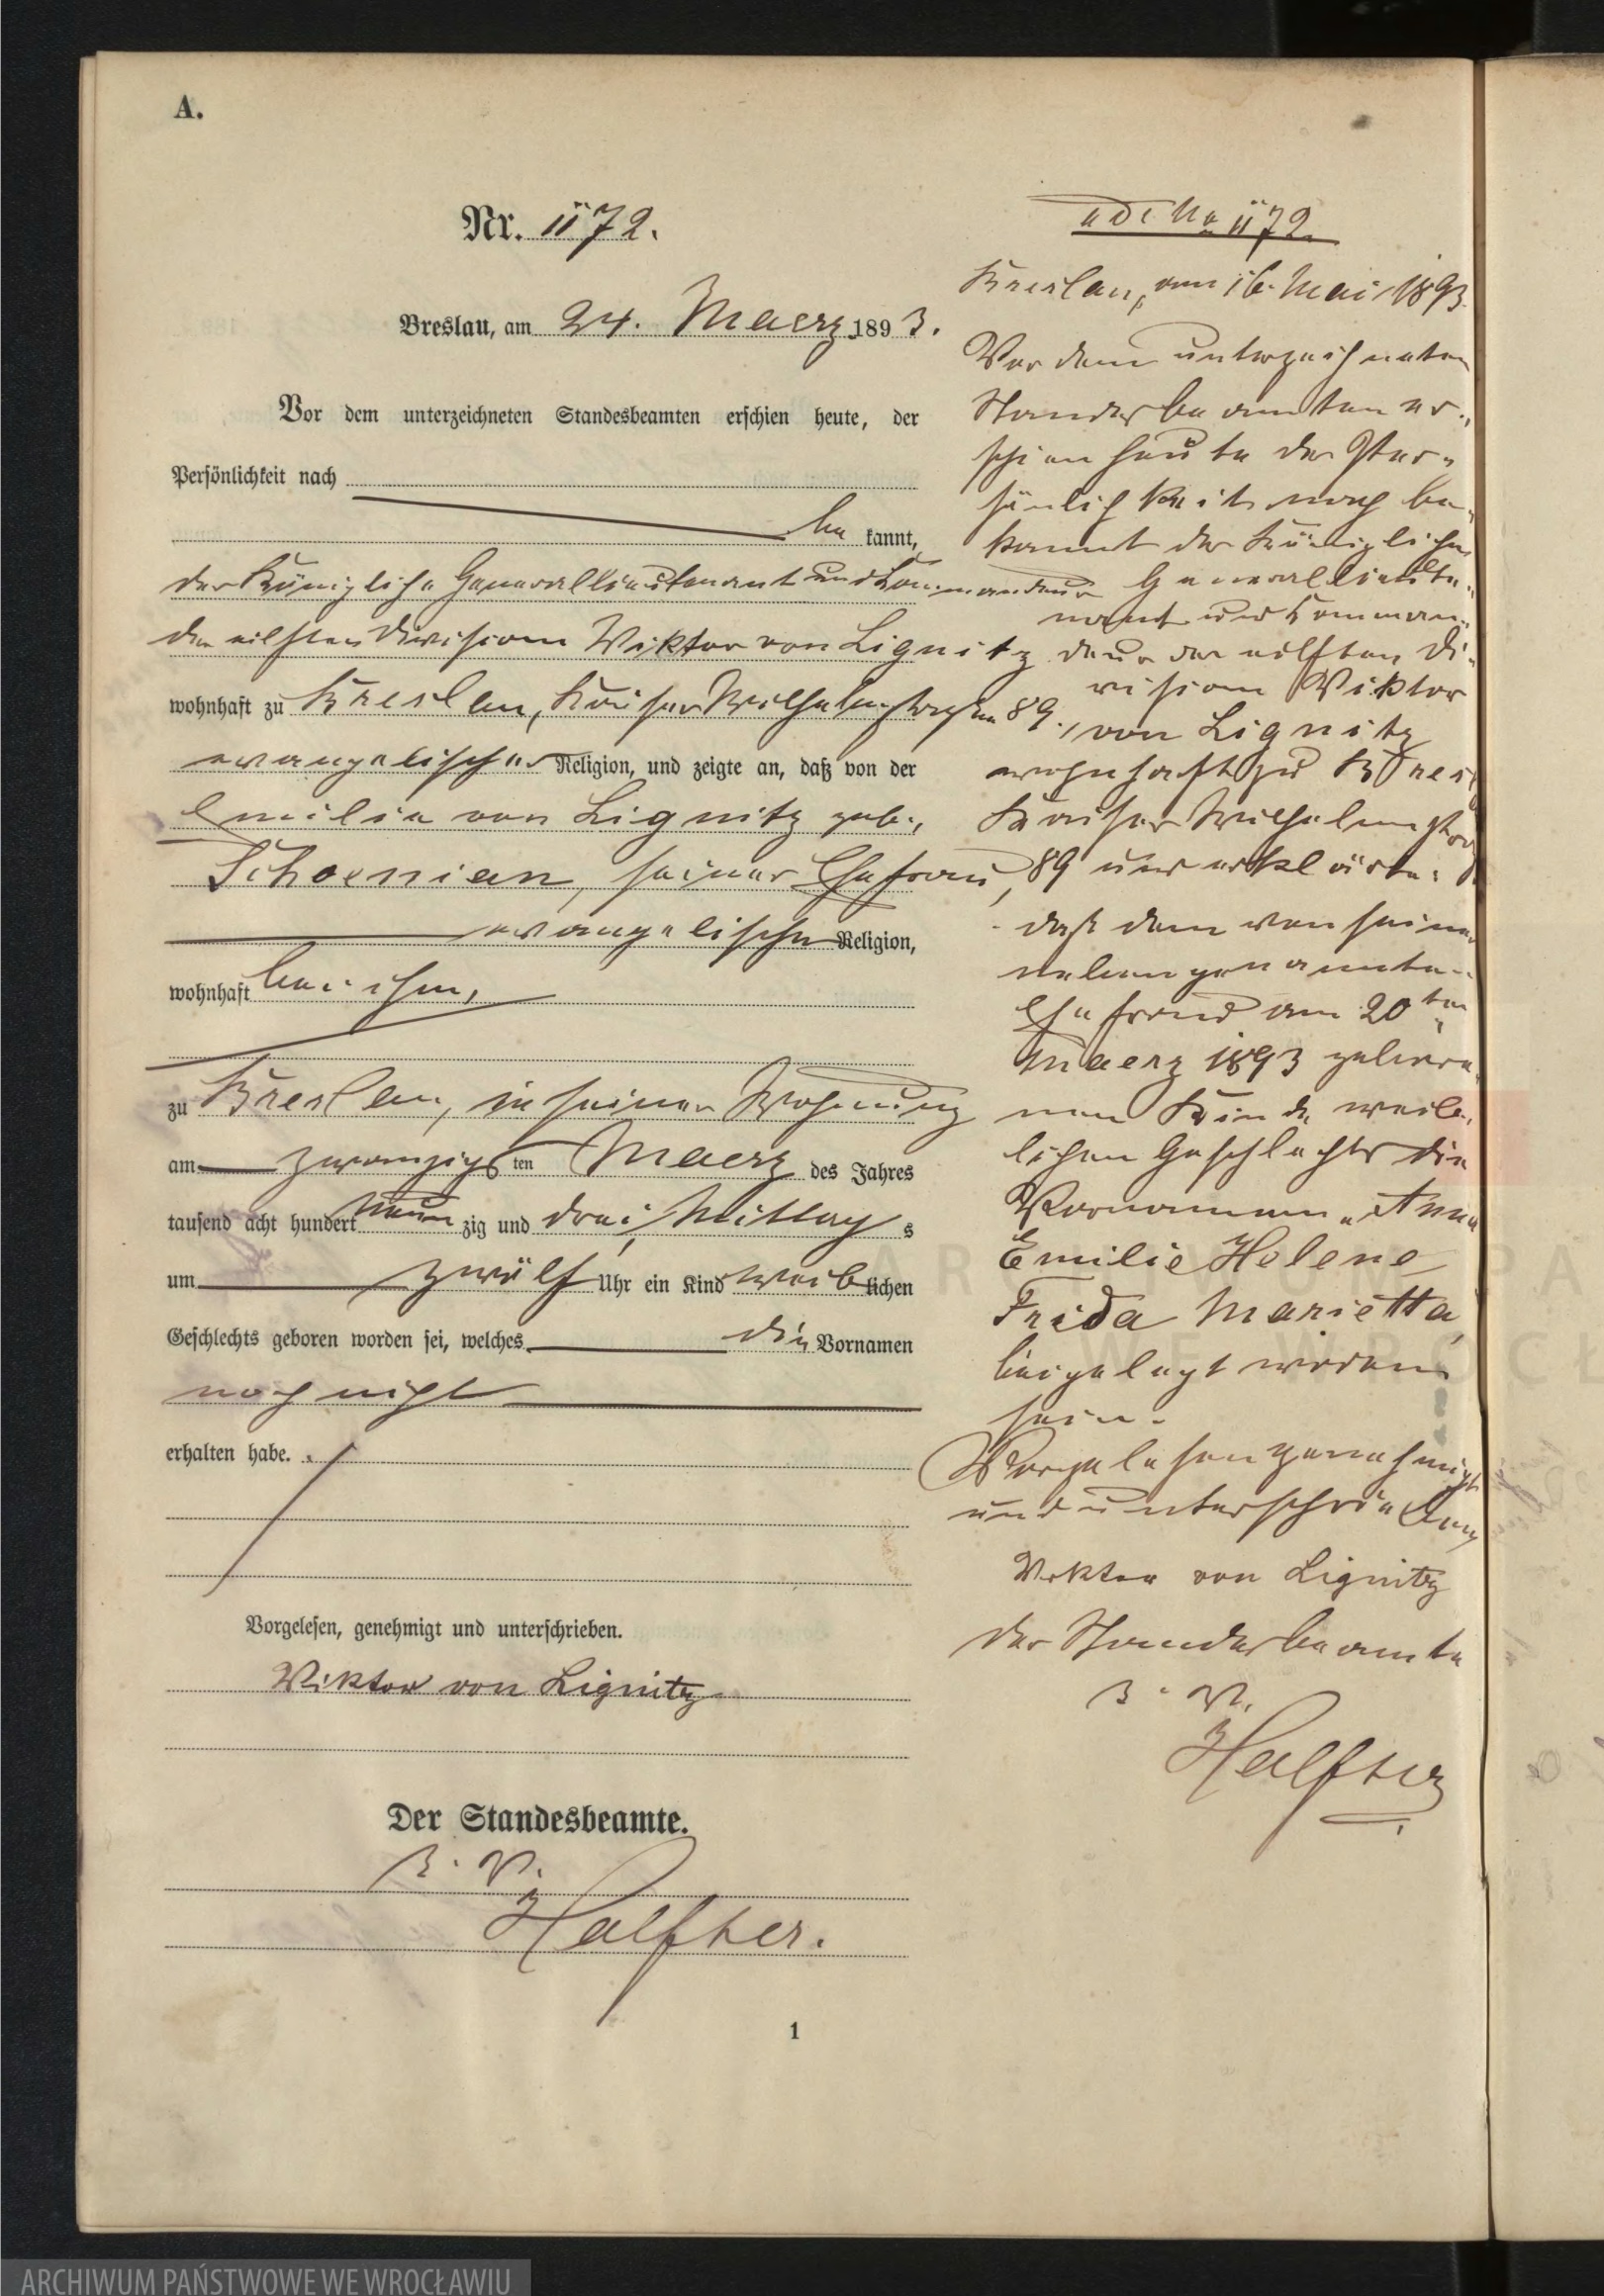 A.
Nr. 1172.
Breslau, am 24. Maerz 1893.
Vor dem unterzeichneten Standesbeamten erschien heute, der
Persönlichkeit nach
be kannt,
der Königliche Generallieutenant und Kommandeur
der eilften Division Wiktor von Lignitz
wohnhaft zu Breslau, Kaiser Wilhelmstraße 89.,
evangelischer Religion, und zeigte an, daß von der
Emilie von Lignitz geb.,
Schoenian, seiner Ehefrau,
evangelischer Religion,
wohnhaft bei ihm,
zu Breslau, in seiner Wohnung
am zwanzigsten Maerz des Jahres
tausend acht hundert neun zig und drei, Mittags
um zwölf Uhr ein Kind weiblichen
Geschlechts geboren worden sei, welches die Vornamen
noch nicht
erhalten habe.
Vorgelesen, genehmigt und unterschrieben.
Wiktor von Lignitz
Der Standesbeamte.
I. V.
Halfter.
1
ad No 1172.
Breslau, am 16. Mai 1893.
Vor dem unterzeichneten
Standesbeamten er-
schien heute der Per-
sönlichkeit nach be-
kannt der Königliche
Generallieute-
nant und Komman-
deur der eilften Di-
vision Wiktor
von Lignitz
wohnhaft zu Bres
Kaiser Wilhelmstra
89 und erklärte:
daß dem von seiner
nebengenannten
Ehefrau am 20ten
Maerz 1893 gebore-
nen Kinde weib-
lichen Geschlechts die
Vornamen „Anna
Emilie Helene
Frida Marietta
beigelegt worden
seien.
Vorgelesen genehmigt
und unterschrieben
Wiktor von Lignitz
Der Standesbeamte
I. V.
Halfter
ARCHIWUM PAŃSTWOWE WE WROCŁAWIU